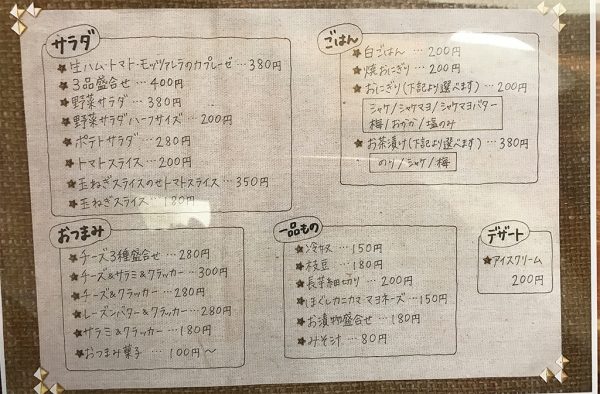 サラダ
生ハム・トマト・モッツァレラのカプレーゼ…380円
3品盛合せ…400円
野菜サラダ…380円
野菜サラダハーフサイズ…200円
ポテトサラダ…280円
トマトスライス…200円
玉ねぎスライスのせトマトスライス…350円
玉ねぎスライス…180円
ごはん
白ごはん…200円
焼おにぎり…200円
おにぎり(下記より選べます)…200円
シャケ/シャケマヨ/シャケマヨバター
梅/おかか/塩のみ
お茶漬け(下記より選べます)…380円
のり/シャケ/梅
おつまみ
チーズ3種盛合せ…280円
チーズ&サラミ&クラッカー…300円
チーズ&クラッカー…280円
レーズンバター&クラッカー…280円
サラミ&クラッカー…180円
おつまみ菓子…100円〜
一品もの
冷奴…150円
枝豆…180円
長芋細切り…200円
ほぐしカニカマ マヨネーズ…150円
お漬物盛合せ…180円
みそ汁…80円
デザート
アイスクリーム
200円